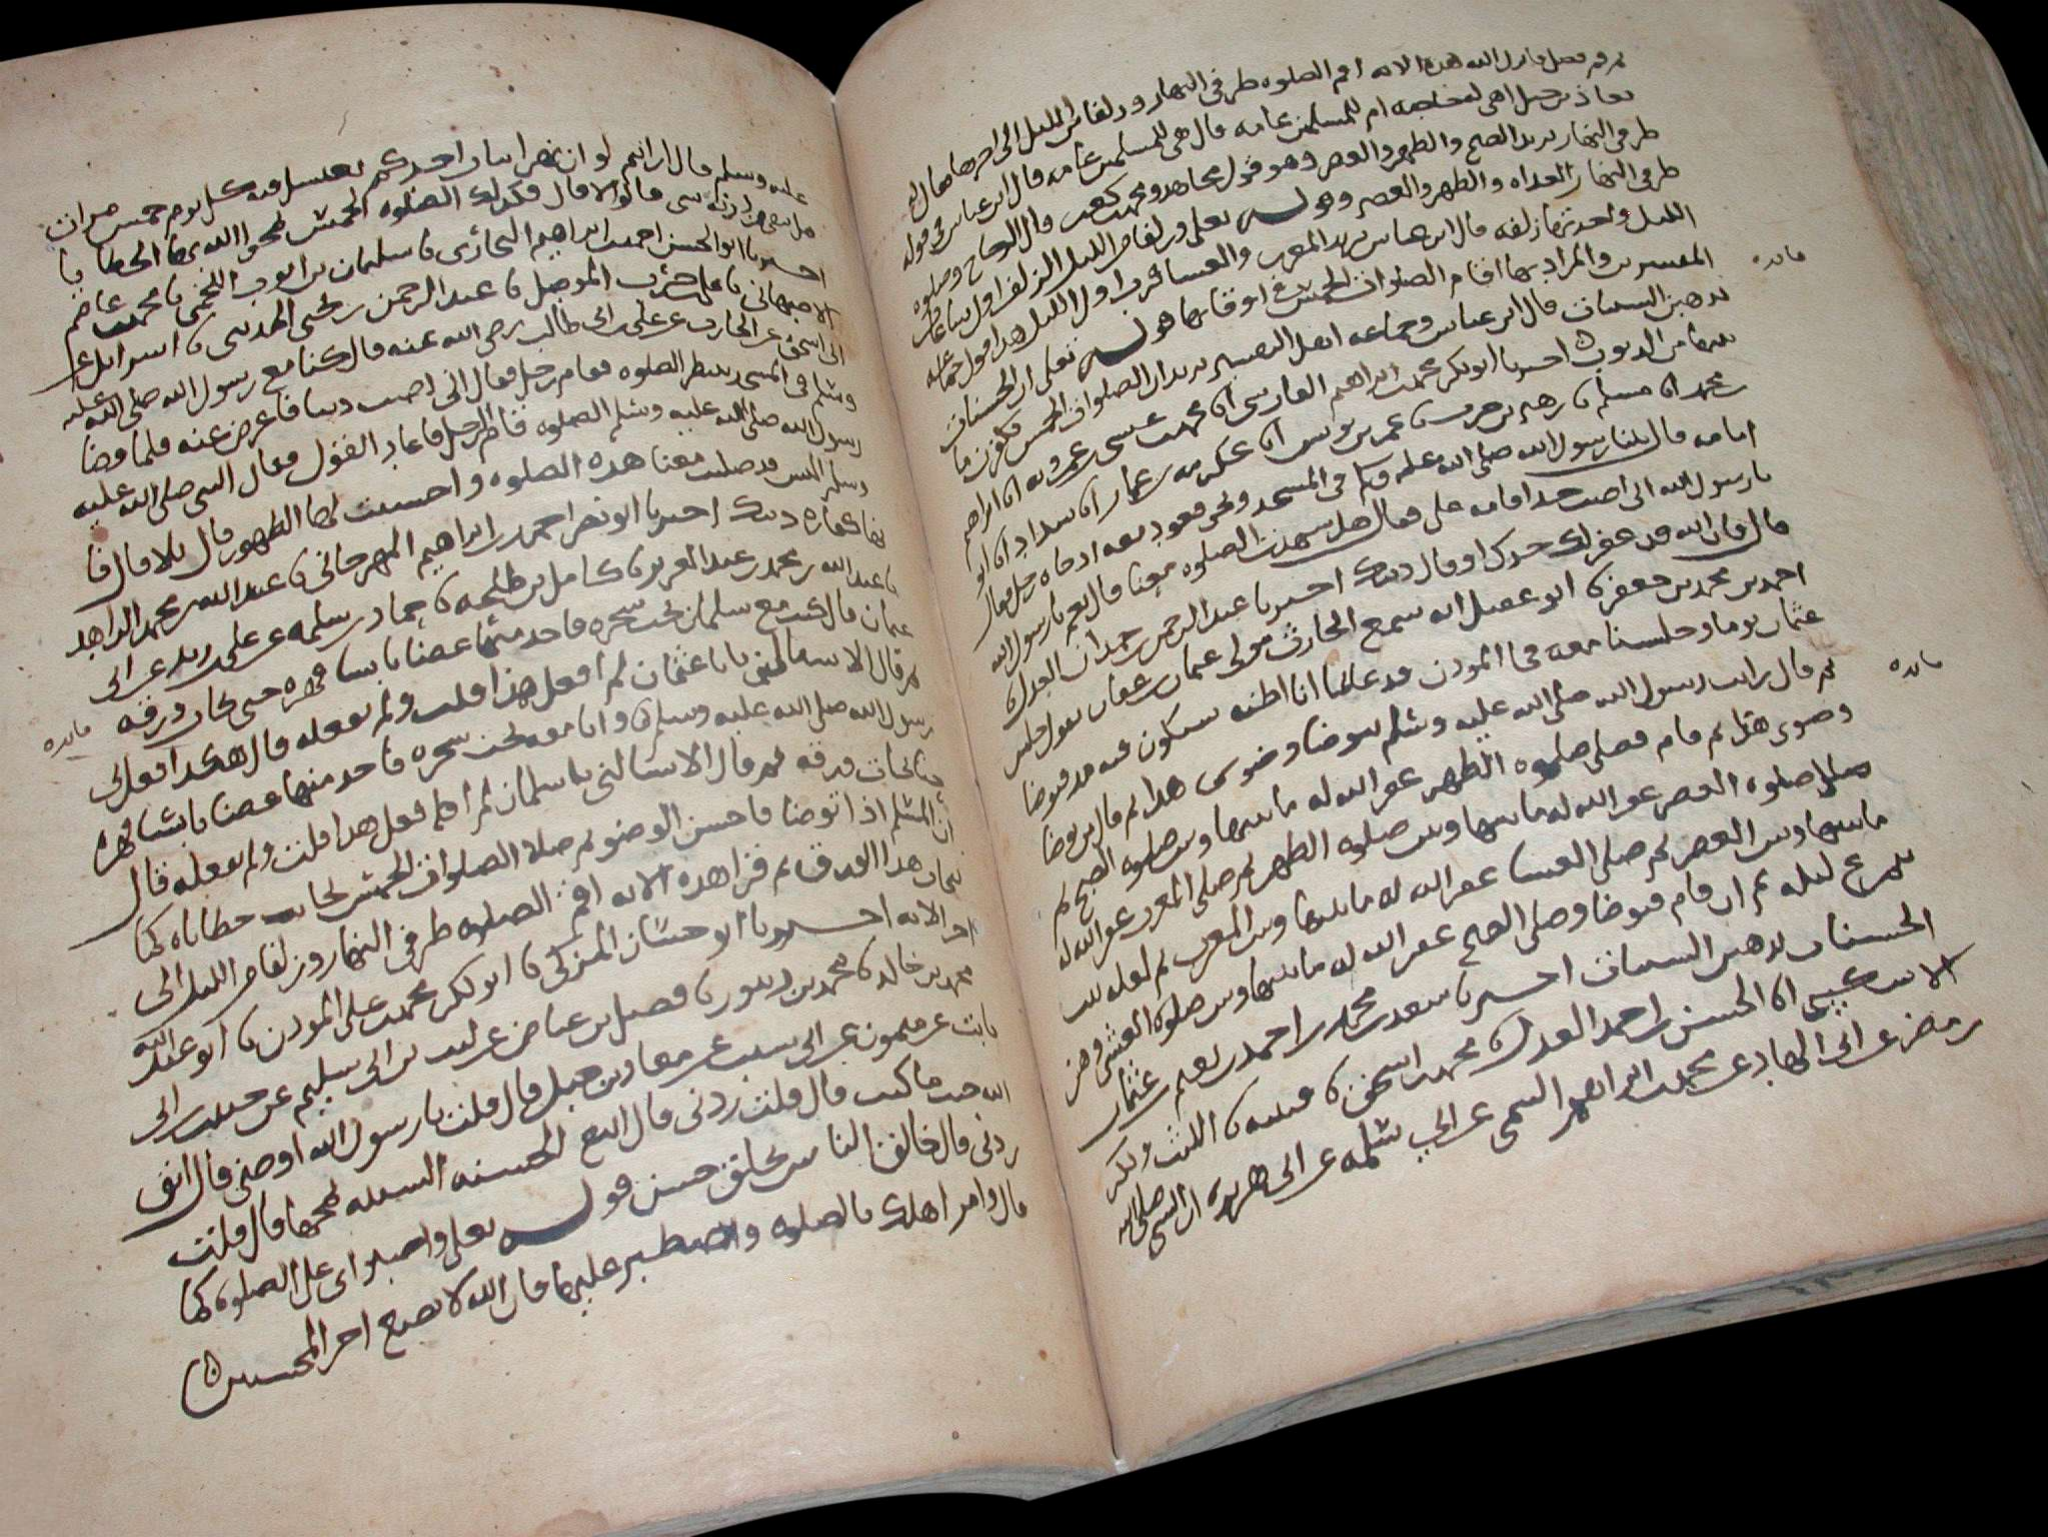 ثم قم فصل فانزل الله هذه الاية اقم الصلوه طرفى النهار وزلفا من الليل الى اخرها فقال
معاذ بن جبل اهى له خاصه ام للمسلمين عامه قال هى للمسلمين عامه قال ابن عباس فى قوله
طرفى النهار يريد الصبح والظهر والعصر وهو قول مجاهد ومحمد بن كعب وقال الزجاج وصلوه
طرفى النهار الغداه والظهر والعصر وقوله تعلى وزلفا من الليل الزلف اول ساعات
الليل واحدتها زلفه قال ابن عباس يريد المغرب والعشا قرب اول الليل هذا قول جماعه
المفسرين والمراد بهما اقام الصلوات الخمس فى اوقاتها قوله تعلى ان الحسنات
يذهبن السيات قال ابن عباس وجماعه اهل التفسير يريد ان الصلوات الخمس تكفر ما
بينها من الذنوب اخبرنا ابو بكر محمد بن ابراهيم الفارسى انا محمد بن عيسى بن عمرويه انا ابراهيم
بن محمد انا مسلم نا زهير بن حرب نا عمر بن يونس انا عكرمه بن عمار انا شداد انا ابو
امامه قال بينا رسول الله صلى الله عليه وسلم فى المسجد ونحن قعود معه اذ جاه رجل فقال
يا رسول الله انى اصبت حدا فاقمه على فقال هل شهدت الصلوه معنا قال نعم يا رسول الله
قال فان الله قد غفر لك حدك او قال ذنبك اخبرنا عبد الرحمن بن حمدان العدل انا
احمد بن محمد بن جعفر نا ابو عقيل انه سمع الحارث مولى عثمان بن عفان يقول جلس
عثمان يوما وجلسنا معه فجا الموذن فدعا بما انا اظنه سيكون فيه مد فتوضا
ثم قال رايت رسول الله صلى الله عليه وسلم يتوضا وضوى هذا ثم قال من توضا
وضوى هذا ثم قام فصلى صلوه الظهر غفر الله له ما بينها وبين صلوه الصبح ثم
صلى صلوه العصر غفر الله له ما بينها وبين صلوه الظهر ثم صلى المغرب غفر الله له
ما بينها وبين العصر ثم صلى العشا غفر الله له ما بينها وبين المغرب ثم لعله يبيت
يتمرغ ليله ثم ان قام فتوضا وصلى الصبح غفر الله له ما بينها وبين صلوه العشى وهن
الحسنات يذهبن السيات اخبرنا سعيد بن محمد بن احمد بن نعيم بن عثمان
الاشكيبى انا الحسن بن احمد العدل نا محمد بن اسحق نا قتيبه نا الليث وبكر
بن مضر عن ابن الهاد عن محمد بن ابراهيم التيمى عن ابى سلمه عن ابى هريره ان النبى صلى الله
فائده
فائده
عليه وسلم قال ارايتم لو ان نهرا بباب احدكم يغتسل منه كل يوم خمس مرات
هل يبقى من درنه شى قالوا لا قال فكذلك الصلوه الخمس يمحوا الله بها الخطايا
اخبرنا ابو الحسن احمد بن ابراهيم النجارى نا سليمان بن ايوب اللخمى نا محمد بن عاصم
الاصبهانى نا على بن حرب الموصلى نا عبد الرحمن بن يحيى نا اسرائيل عن
ابى اسحق عن الحارث عن على بن ابى طالب رضى الله عنه قال كنا مع رسول الله صلى الله عليه
وسلم فى المسجد ننتظر الصلوه فقام رجل فقال انى اصبت ذنبا فاعرض عنه فلما قضا
رسول الله صلى الله عليه وسلم الصلوه قام الرجل فاعاد القول فقال النبى صلى الله عليه
وسلم اليس قد صليت معنا هذه الصلوه واحسنت لها الطهور قال بلا قال فا
نها كفاره ذنبك اخبرنا ابو نصر احمد بن ابراهيم المهرجانى نا عبد الله بن محمد الزاهد
نا عبد الله بن محمد بن عبد العزيز نا كامل بن طلحه نا حماد بن سلمه عن على بن زيد عن ابى
عثمان قال كنت مع سلمان تحت شجره فاخذ منها غصنا يابسا فهزه حتى تحات ورقه
ثم قال الا تسالنى يابا عثمان لم افعل هذا قلت ولم تفعله قال هكذا فعل بى
رسول الله صلى الله عليه وسلم وانا معه تحت شجره فاخذ منها غصنا يابسا فهزه
حتى تحات ورقه ثم قال الا تسالنى يا سلمان لم افعل هذا قلت ولم تفعله قال
ان المسلم اذا توضا فاحسن الوضو ثم صلا الصلوات الخمس تحات خطاياه كما
تحات هذا الورق ثم قرا هذه الايه اقم الصلوه طرفى النهار وزلفا من الليل الى
اخر الايه اخبرنا ابو حسان المزكى نا ابو بكر محمد بن على الموذن نا ابو عبد الله
محمد بن خالد نا محمد بن دينور نا فضيل بن عياض عن ليث بن ابى سليم عن حبيب بن ابى
ثابت عن ميمون بن ابى شبيب عن معاذ بن جبل قال قلت يا رسول الله اوصنى قال اتق
الله حيث ما كنت قال قلت زدنى قال اتبع الحسنه السيئه تمحها قال قلت
زدنى قال خالق الناس بخلق حسن قوله تعلى واصبر اى على الصلوه كما
قال وامر اهلك بالصلوه واصطبر عليها فان الله لا يضيع اجر المحسنين
فائده